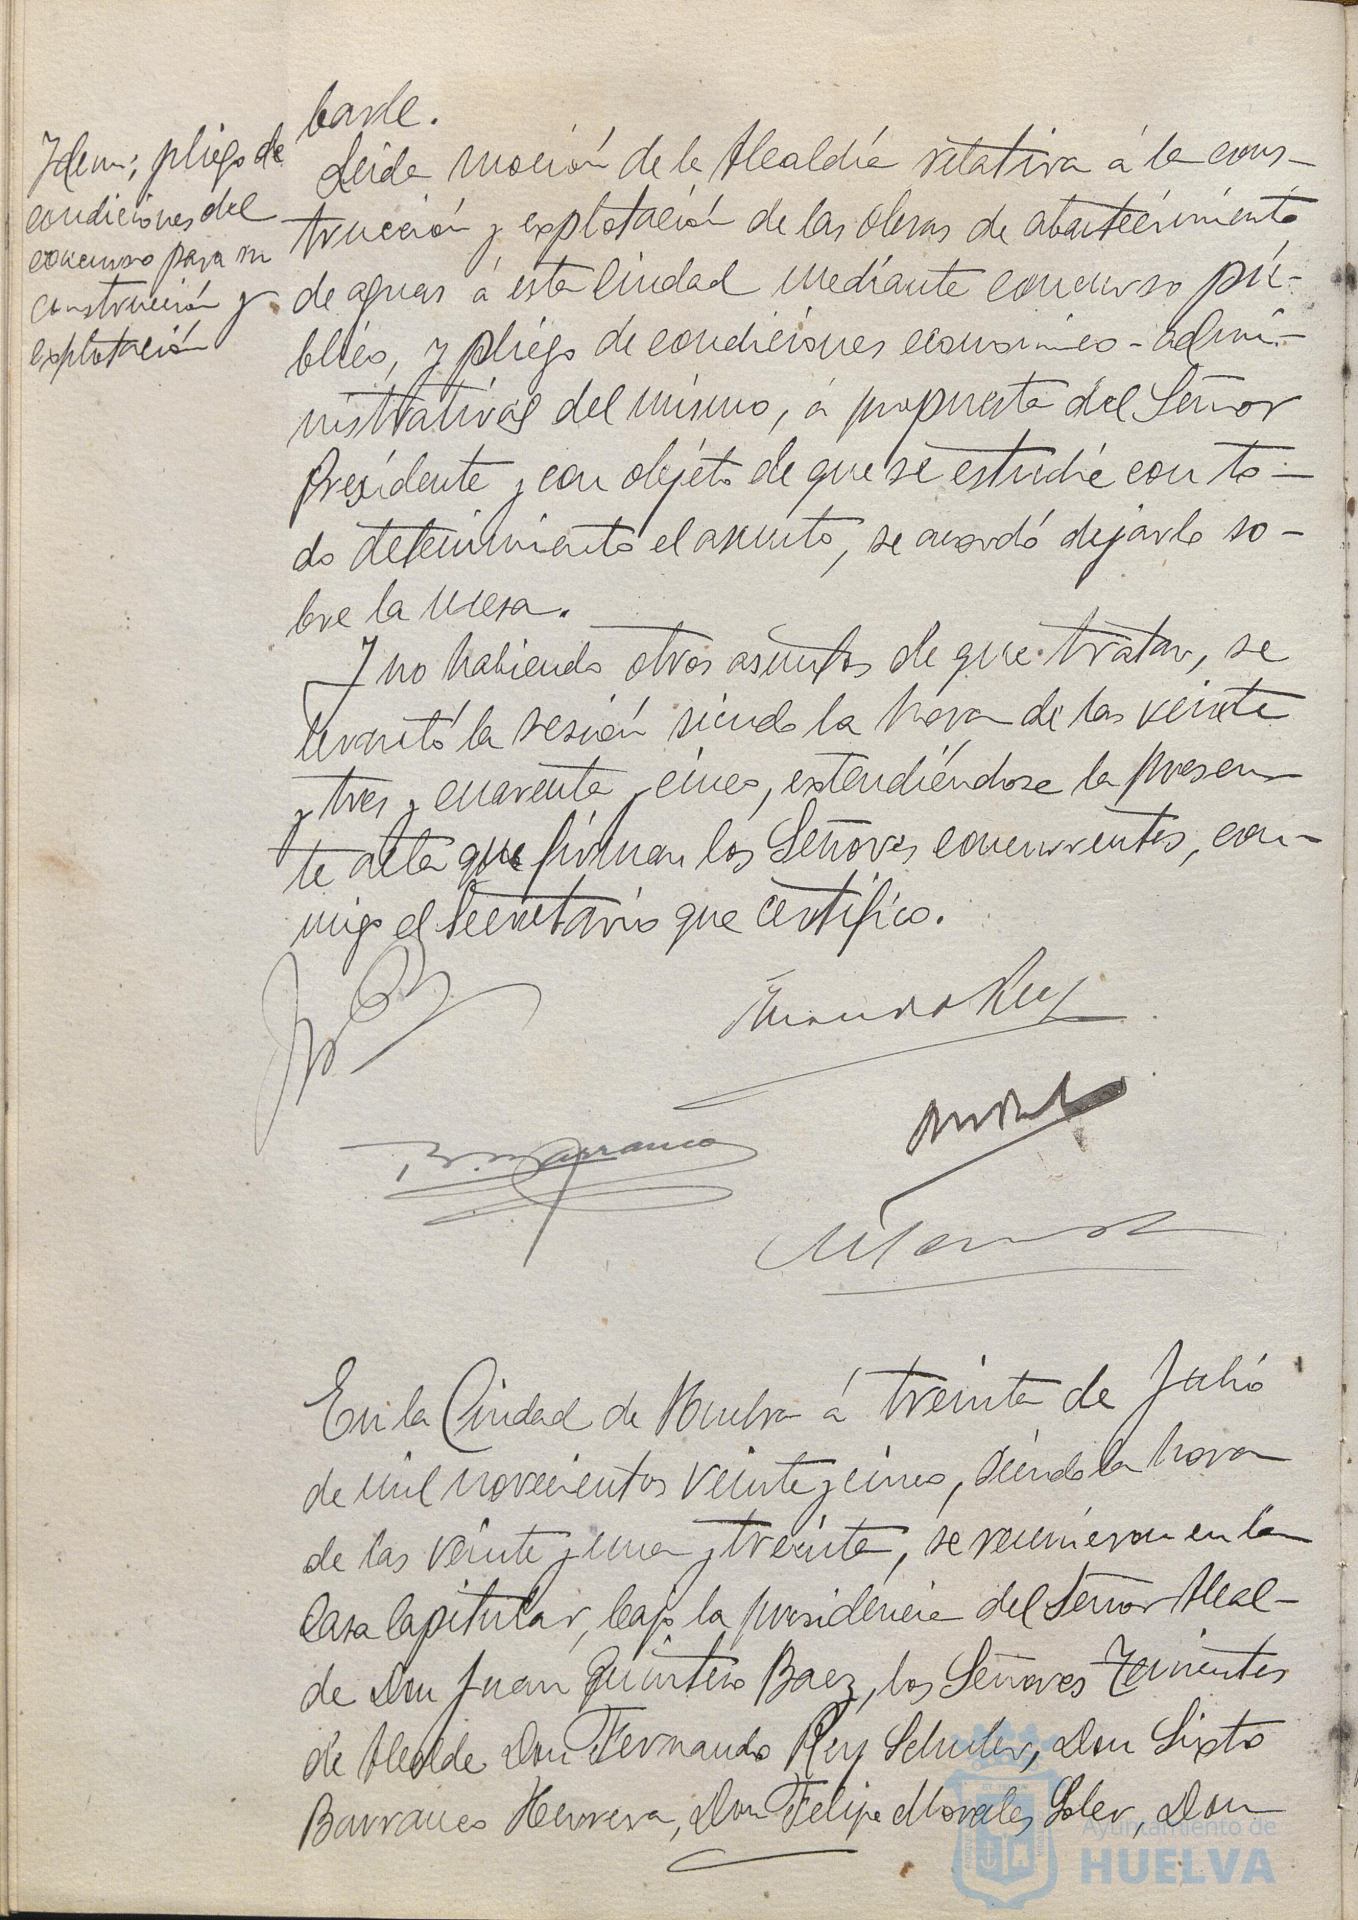 Idem; pliego de
condiciones del
concurso para su
construcción y
explotación
barde.
Leida moción de la Alcaldía relativa á la cons-
trucción y explotación de las obras de abastecimiento
de aguas á esta Ciudad mediante concurso pú-
blico, y pliego de condiciones economico-admi-
nistrativas del mismo, á propuesta del Señor
Presidente y con objéto de que se estudie con to-
do detenimiento el asunto, se acordó dejarlo so-
bre la mesa.
Y no habiendo otros asuntos de que tratar, se
levantó la sesión siendo la hora de las veinte
y tres y cuarenta y cinco, extendiéndose la presen-
te acta que firman los Señores concurrentes, con-
migo el Secretario que certifico.
Fernando Rey
Barranco
En la Ciudad de Huelva á treinta de Julio
de mil novecientos veinte y cinco, siendo la hora
de las veinte y una y treinta, se reunieron en la
Casa Capitular, bajo la presidencia del Señor Alcal-
de Don Juan Quintero Baez, los Señores Tenientes
de Alcalde Don Fernando Rey Schuler, Don Sixto
Barranco Herrera, Don Felipe Morales Soler, Don
Ayuntamiento de
HUELVA